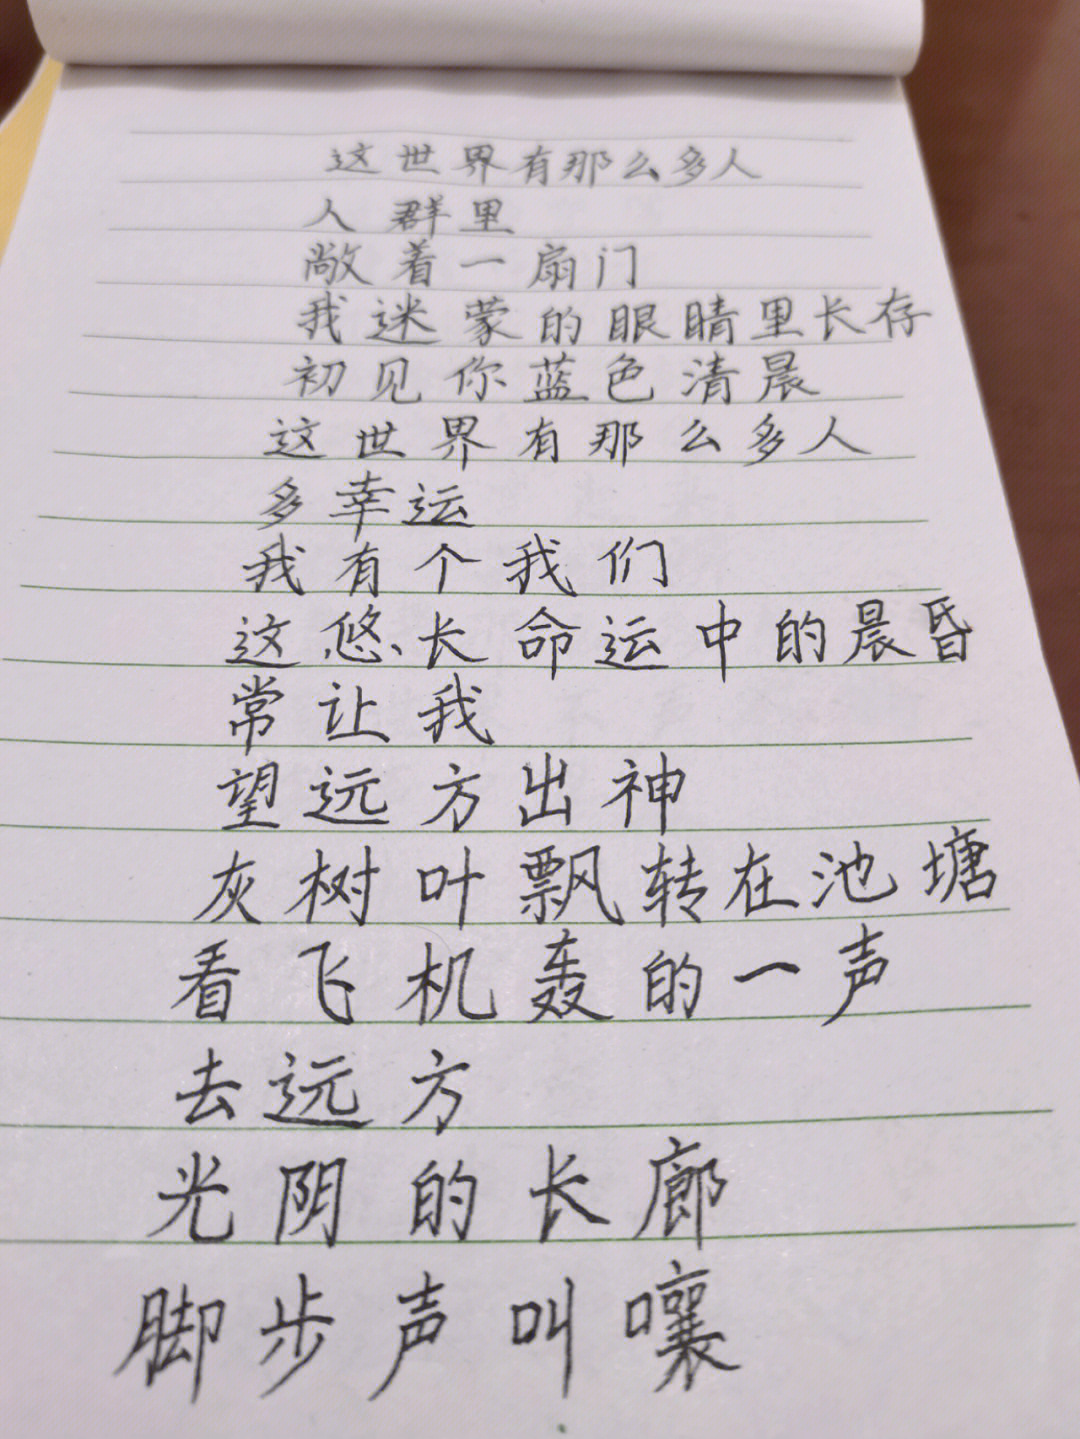 这世界有那么多人
人群里
敞着一扇门
我迷蒙的眼睛里长存
初见你蓝色清晨
这世界有那么多人
多幸运
我有个我们
这悠长命运中的晨昏
常让我
望远方出神
灰树叶飘转在池塘
看飞机轰的一声
去远方
光阴的长廊
脚步声叫嚷